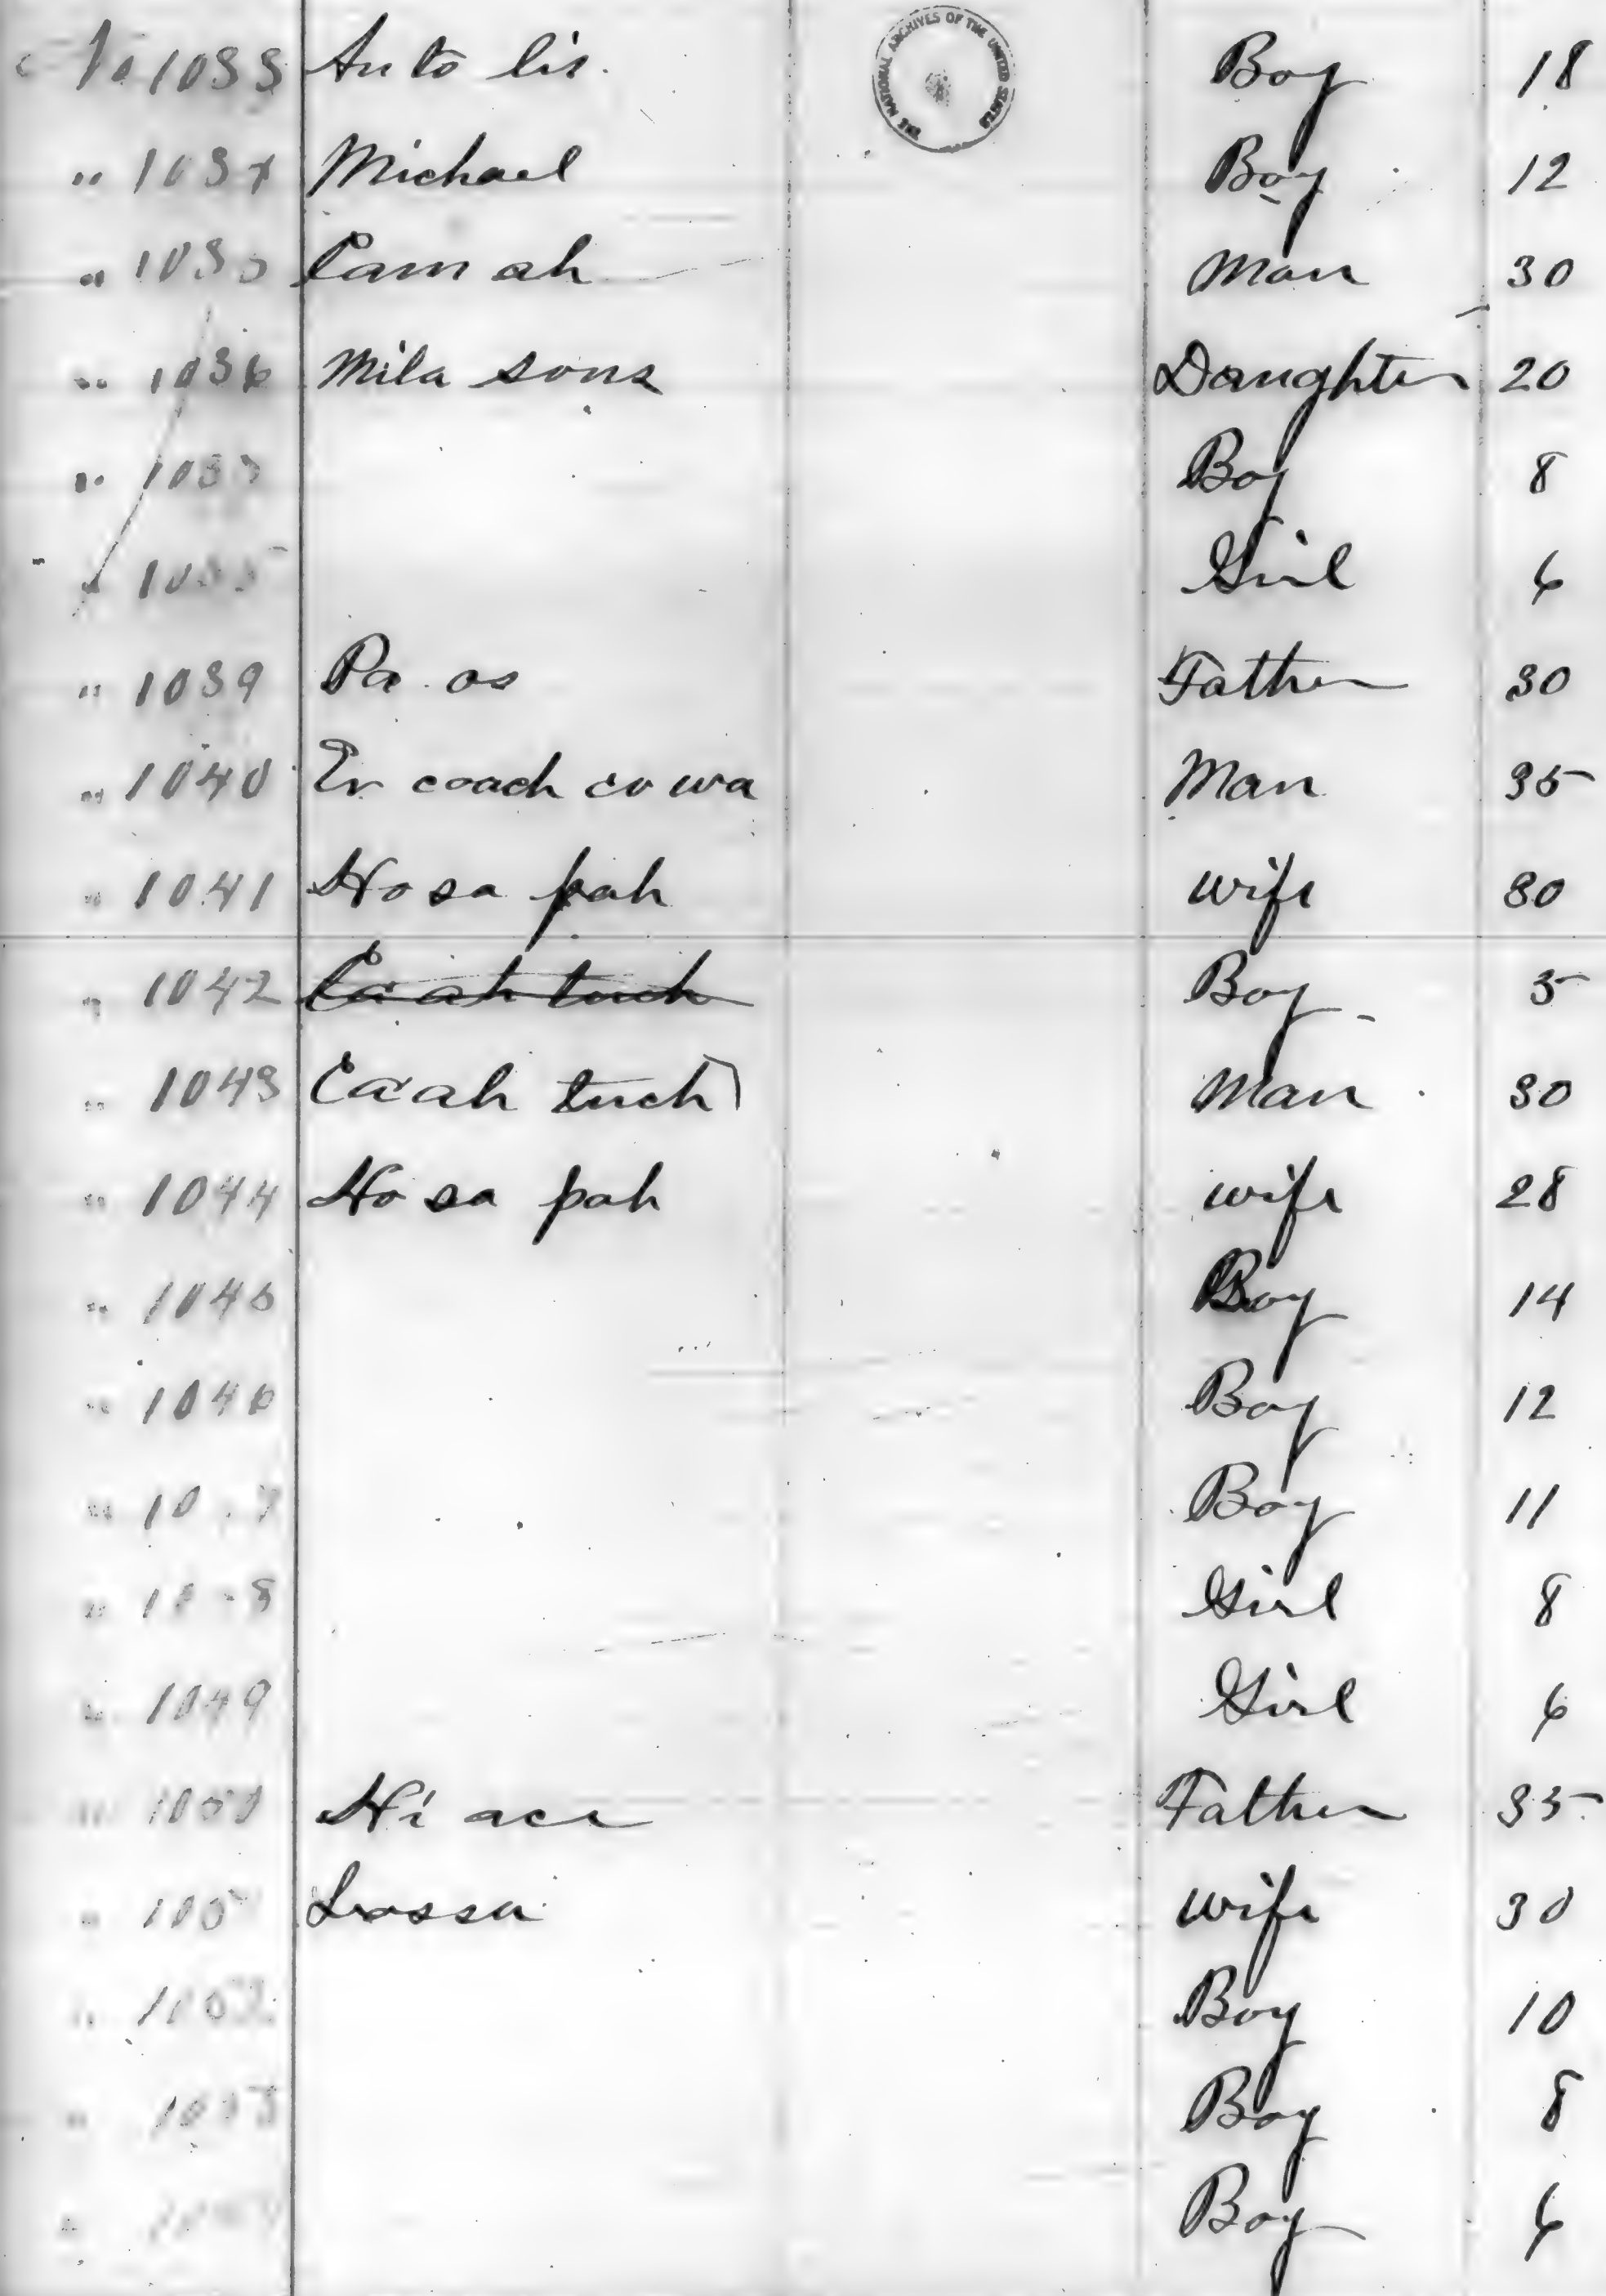 THE NATIONAL ARCHIVES OF THE UNITED STATES
No 1033 An to lis. Boy 18
" 1034 Michael Boy 12
" 1035 Cam ah Man 30
" 1036 Mila sons Daughter 20
" 103 Boy 8
" 103 Girl 6
" 1039 Pa os Father 30
" 1040 En coach co wa Man 35
" 1041 Ho sa pah wife 30
" 1042 Ea ah tuch Boy 5
" 1043 Ea ah tuch Man 30
" 1044 Ho sa pah wife 28
" 1045 Boy 14
" 1046 Boy 12
" 10 7 Boy 11
" 10 8 Girl 8
" 1049 Girl 6
" 1050 Hi aca Father 35
" 105 Lossa wife 30
" 1052 Boy 10
" 1053 Boy 8
" Boy 6